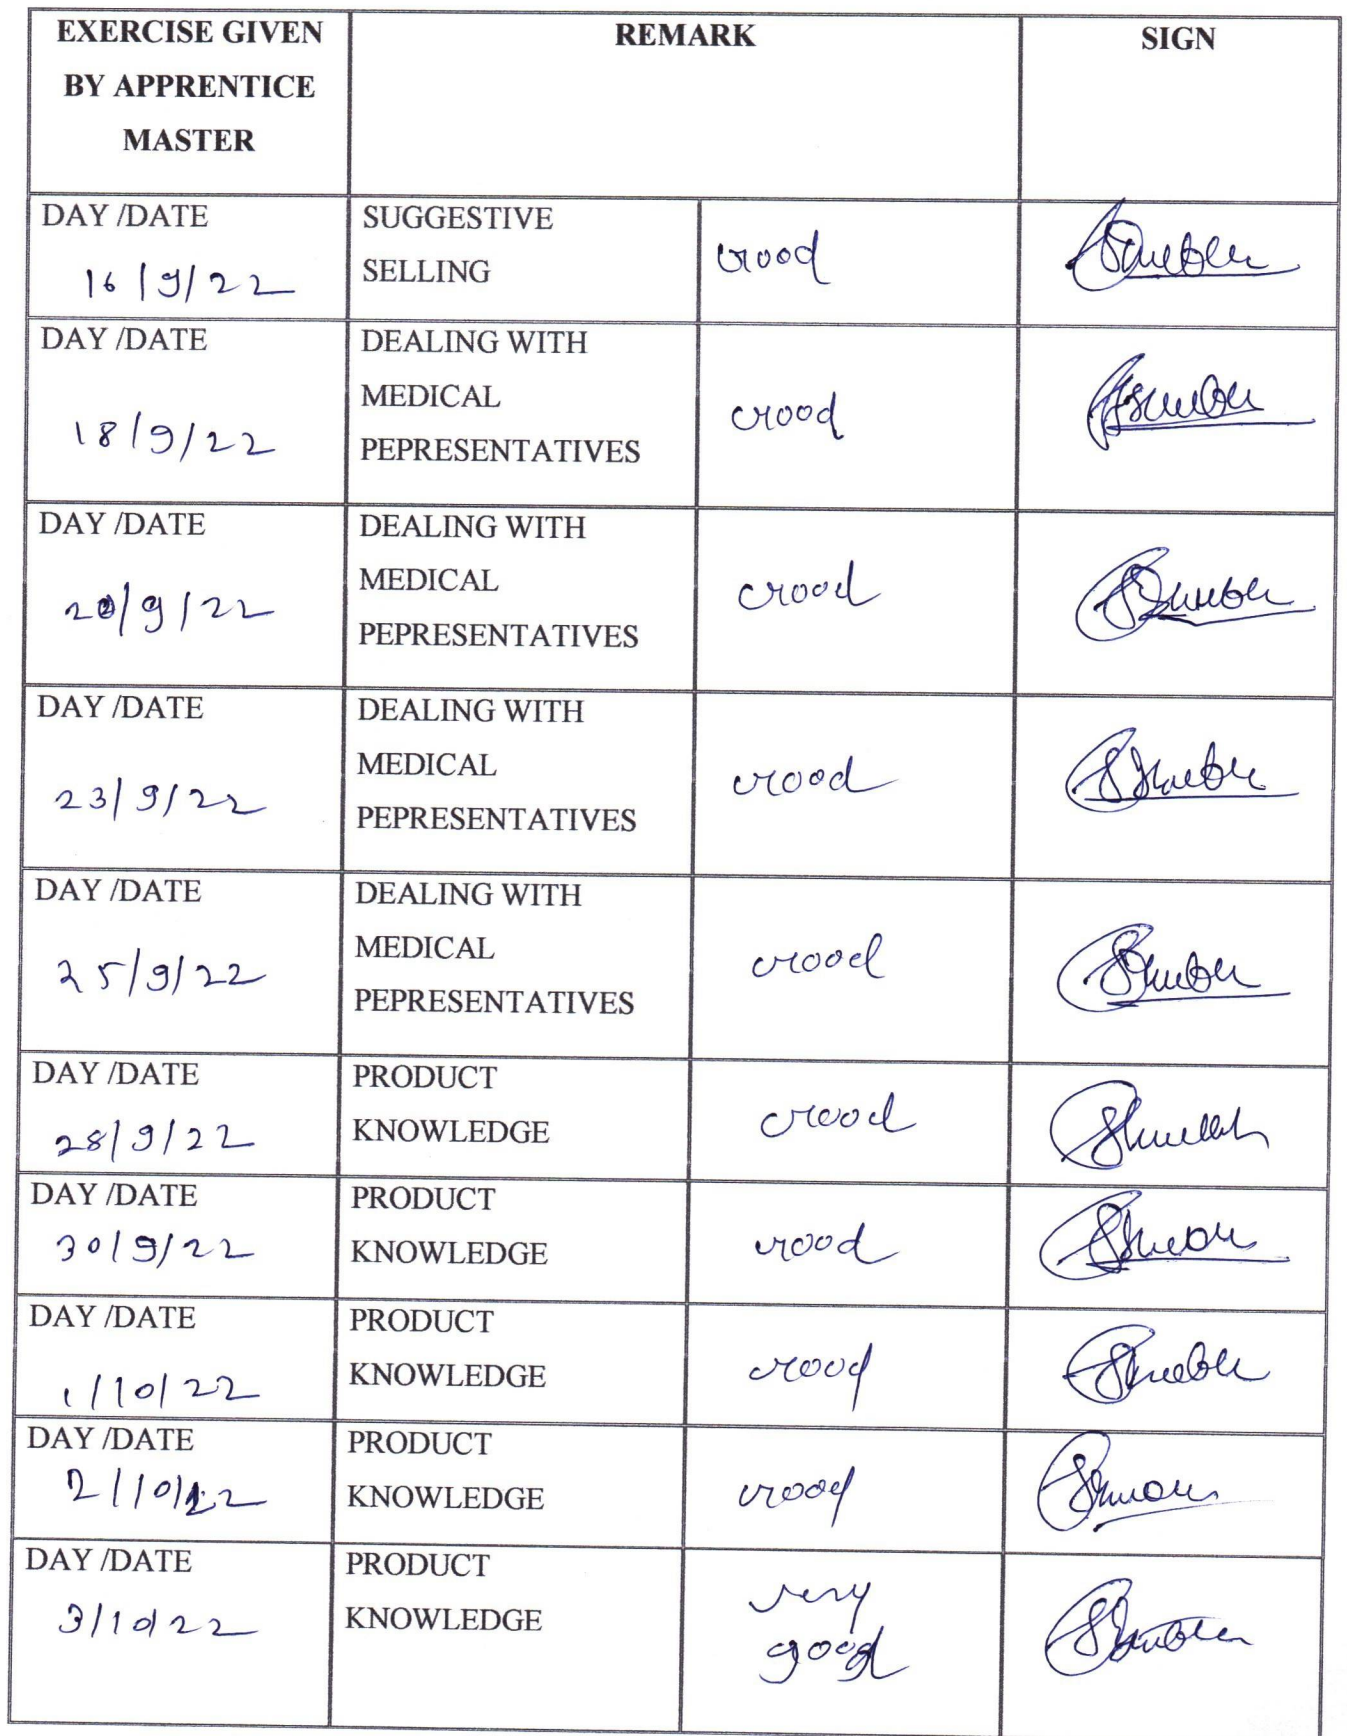 EXERCISE GIVEN
BY APPRENTICE
MASTER
REMARK
SIGN
DAY /DATE
16/9/22
SUGGESTIVE
SELLING
Good
DAY /DATE
18/9/22
DEALING WITH
MEDICAL
PEPRESENTATIVES
Good
DAY /DATE
20/9/22
DEALING WITH
MEDICAL
PEPRESENTATIVES
Good
DAY /DATE
23/9/22
DEALING WITH
MEDICAL
PEPRESENTATIVES
Good
DAY /DATE
25/9/22
DEALING WITH
MEDICAL
PEPRESENTATIVES
Good
DAY /DATE
28/9/22
PRODUCT
KNOWLEDGE
Good
DAY /DATE
30/9/22
PRODUCT
KNOWLEDGE
Good
DAY /DATE
1/10/22
PRODUCT
KNOWLEDGE
Good
DAY /DATE
2/10/22
PRODUCT
KNOWLEDGE
Good
DAY /DATE
3/10/22
PRODUCT
KNOWLEDGE
very
good